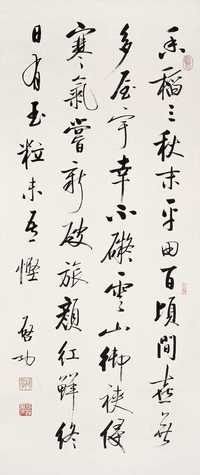 香稻三秋末平田百頃間喜無
多屋宇幸不礙雲山御裌侵
寒氣嘗新破旅顏紅鮮終
日有玉粒未吾慳
啟功